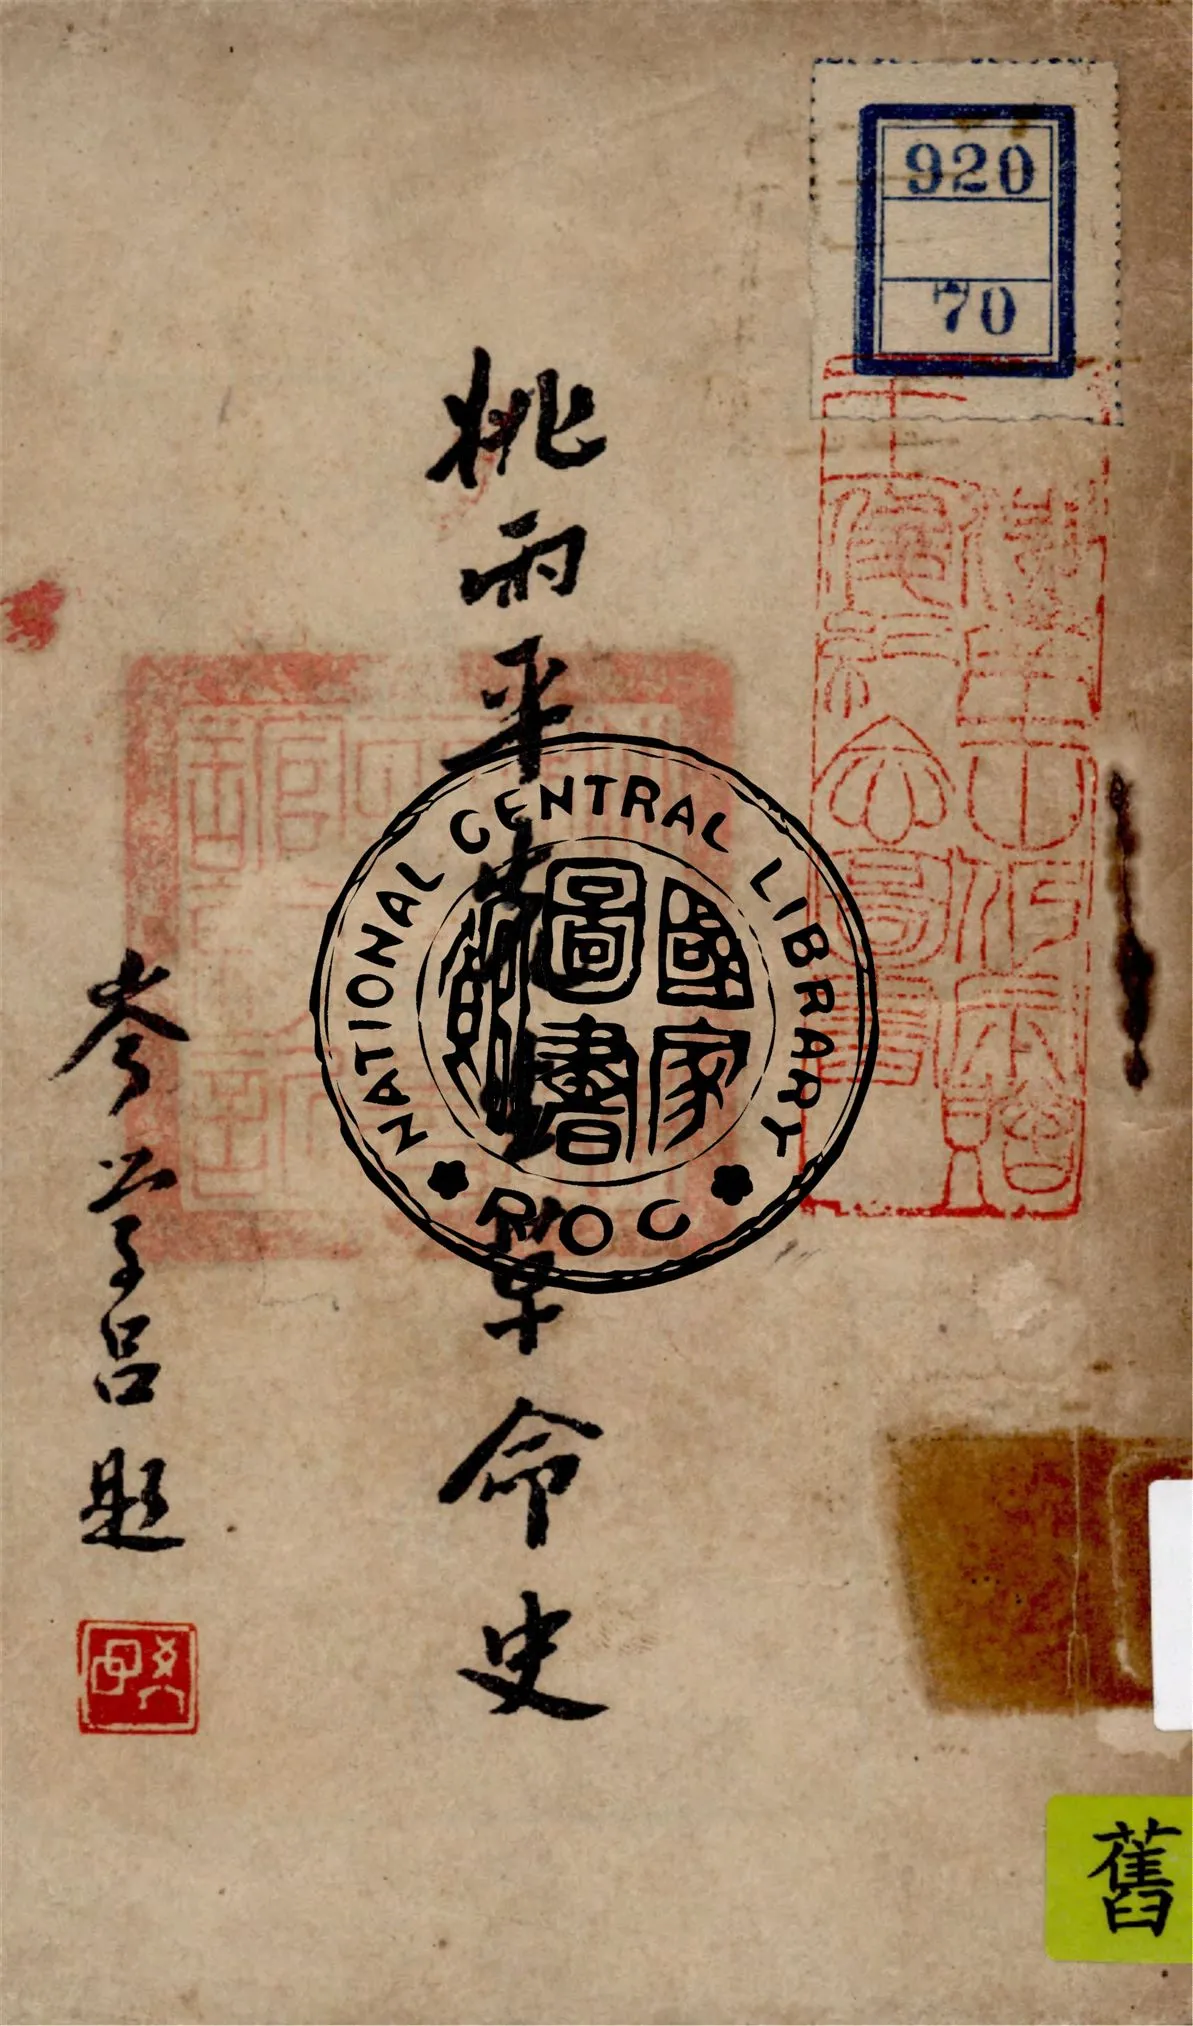 920
70
姚雨平先生革命史
岑學呂題
NATIONAL CENTRAL LIBRARY
國家
圖書
館
ROC
舊